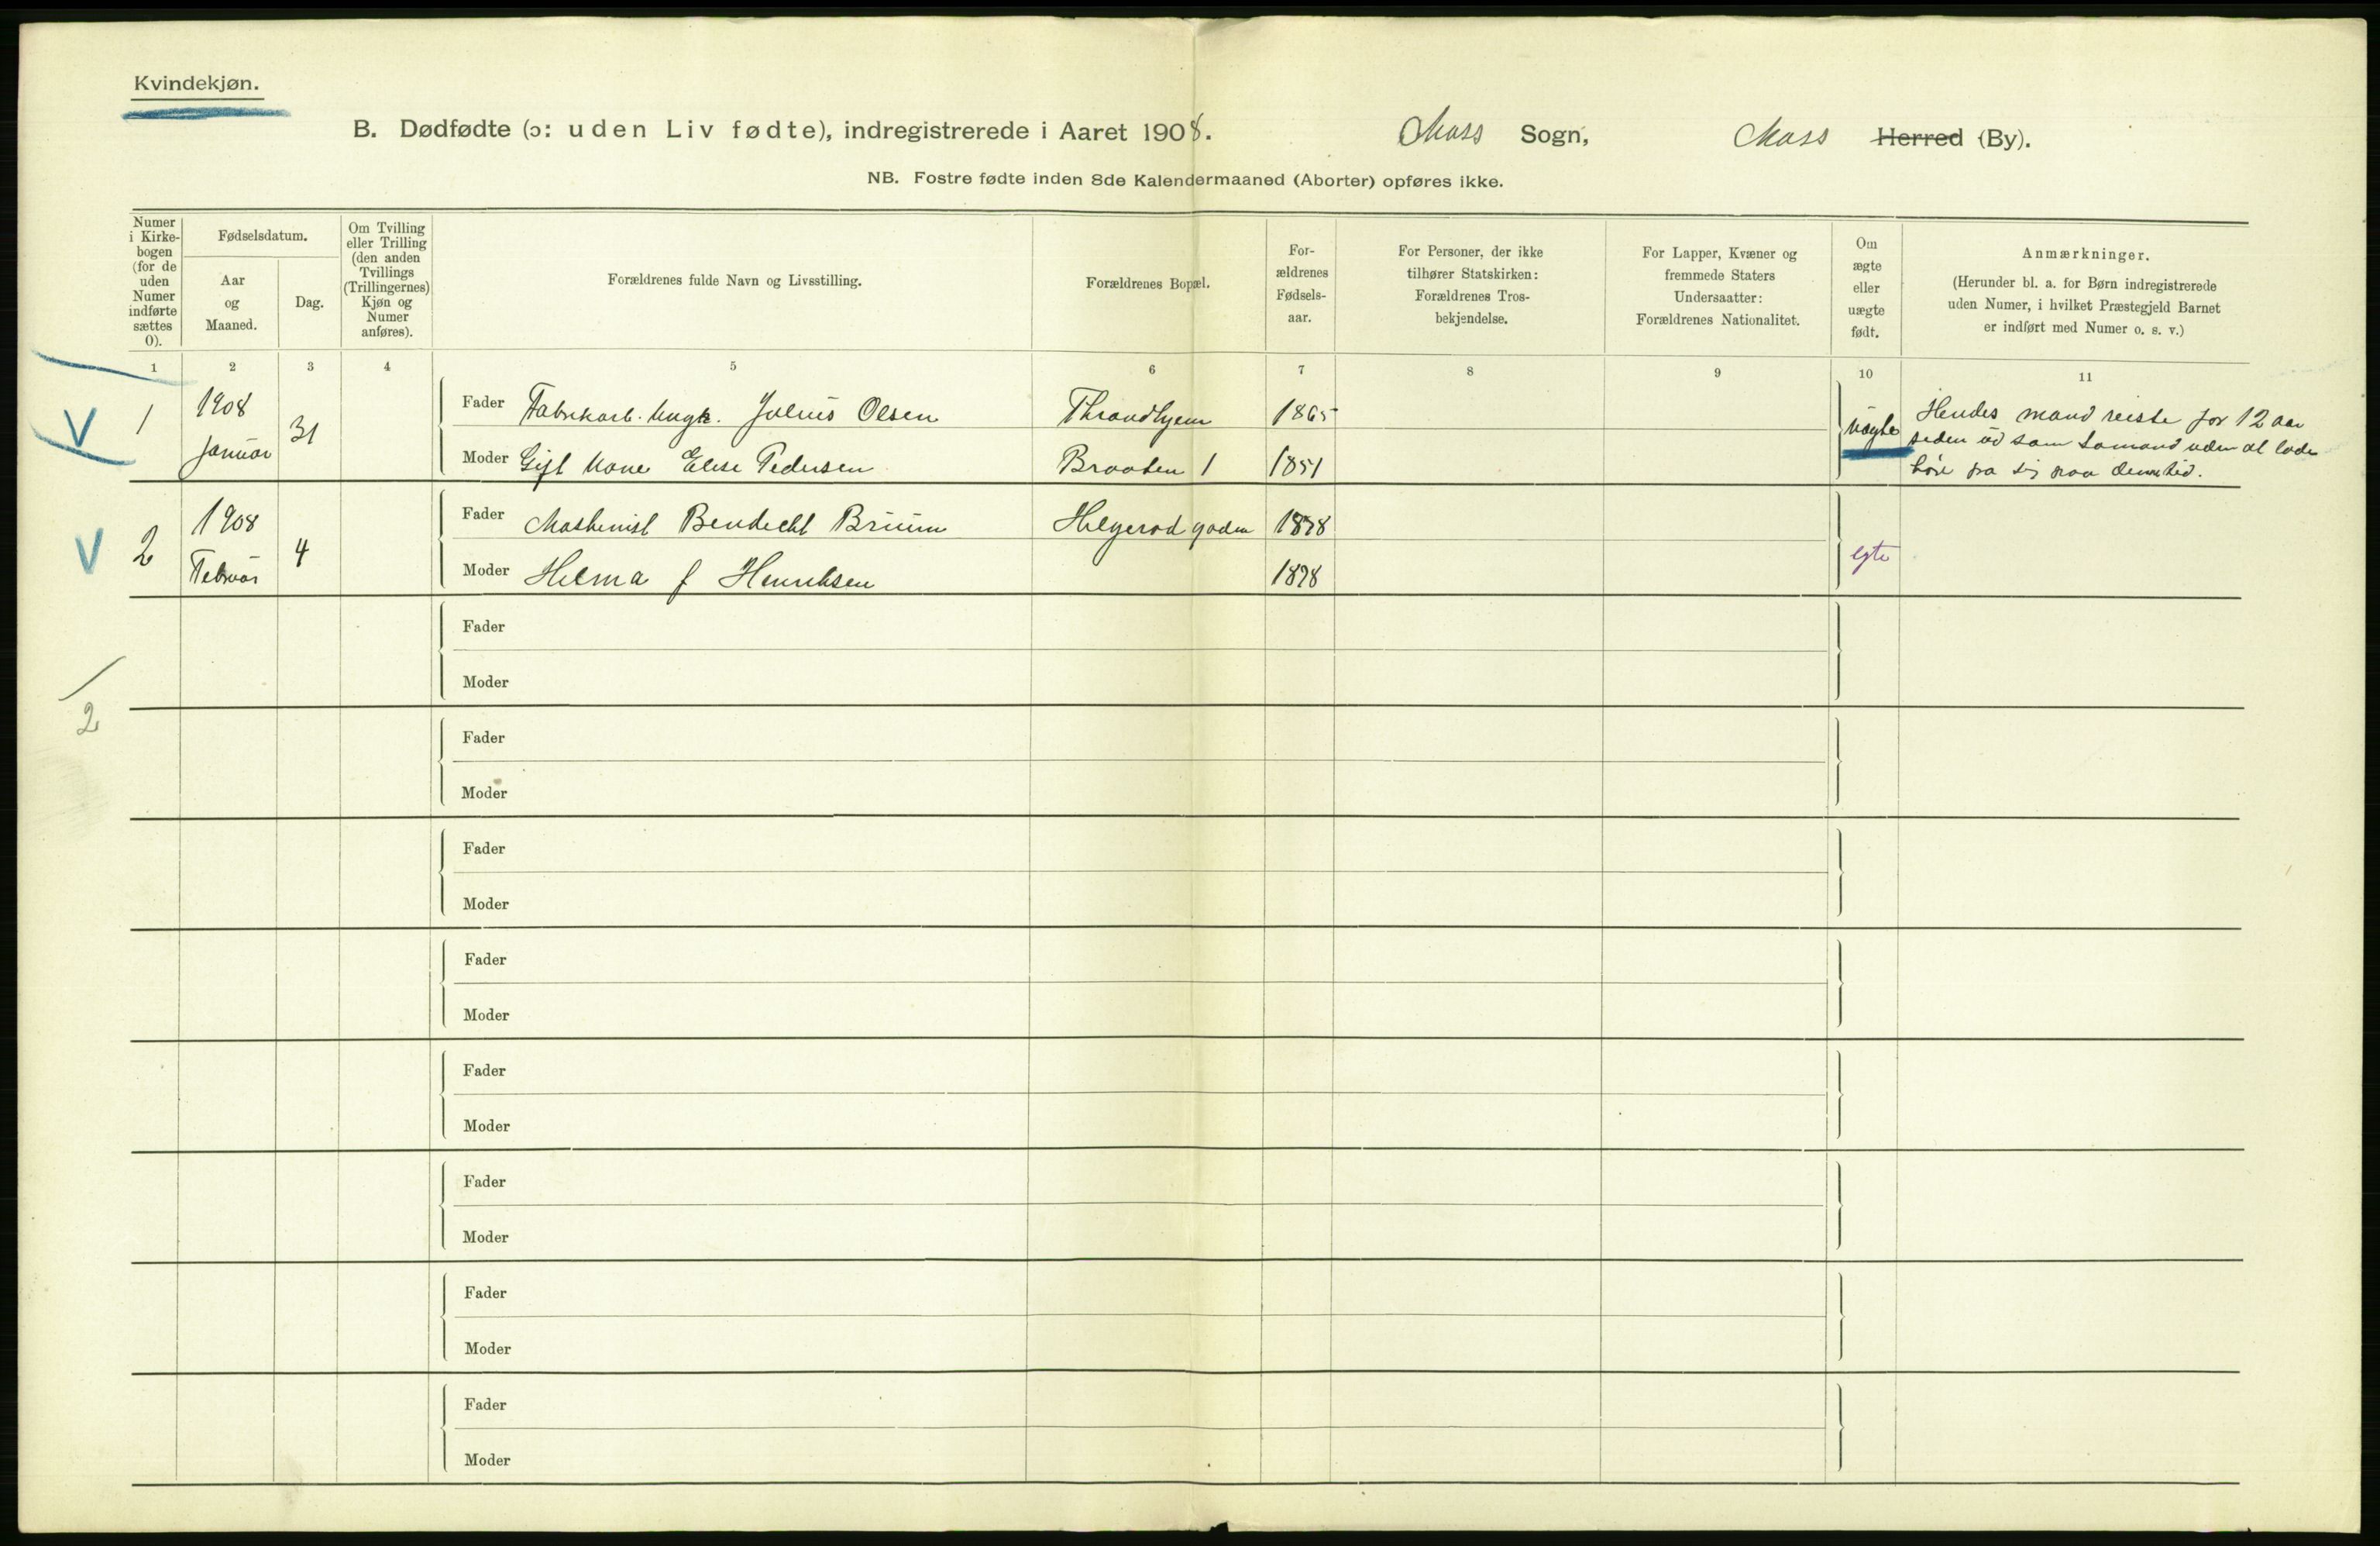 Kvindekjøn.
B. Dødfødte (ɔ: uden Liv fødte), indregistrerede i Aaret 1908. Moss Sogn, Moss Herred (By).
NB. Fostre fødte inden 8de Kalendermaaned (Aborter) opføres ikke.
Numer i Kirke-bogen (for de uden Numer indførte sættes 0).
Fødselsdatum.
Aar og Maaned.
Dag.
Om Tvilling eller Trilling (den anden Tvillings (Trillingernes) Kjøn og Numer anføres).
Forældrenes fulde Navn og Livsstilling.
Forældrenes Bopæl.
For-ældrenes Fødsels-aar.
For Personer, der ikke tilhører Statskirken: Forældrenes Tros-bekjendelse.
For Lapper, Kvæner og fremmede Staters Undersaatter: Forældrenes Nationalitet.
Om ægte eller uægte født.
Anmærkninger.
(Herunder bl. a. for Børn indregistrerede uden Numer, i hvilket Præstegjeld Barnet er indført med Numer o. s. v.)
1 2 3 4 5 6 7 8 9 10 11
V 1 1908 Januar 31
Fader Fabrikarb. Ungk. Julius Olsen Throndhjem 1865
Moder Gift Kone Elise Pedersen Braaten 1 1851
uægte
Hendes mand reiste for 12 aar
siden ud som Sømand uden at lade
høre fra sig fraa denne tid.
V 2 1908 Februar 4
Fader Maskinist Bendicht Bruun Helgerødgaden 1878
Moder Helma f Henriksen 1878
egte
Fader
Moder
2
Fader
Moder
Fader
Moder
Fader
Moder
Fader
Moder
Fader
Moder
Fader
Moder
Fader
Moder